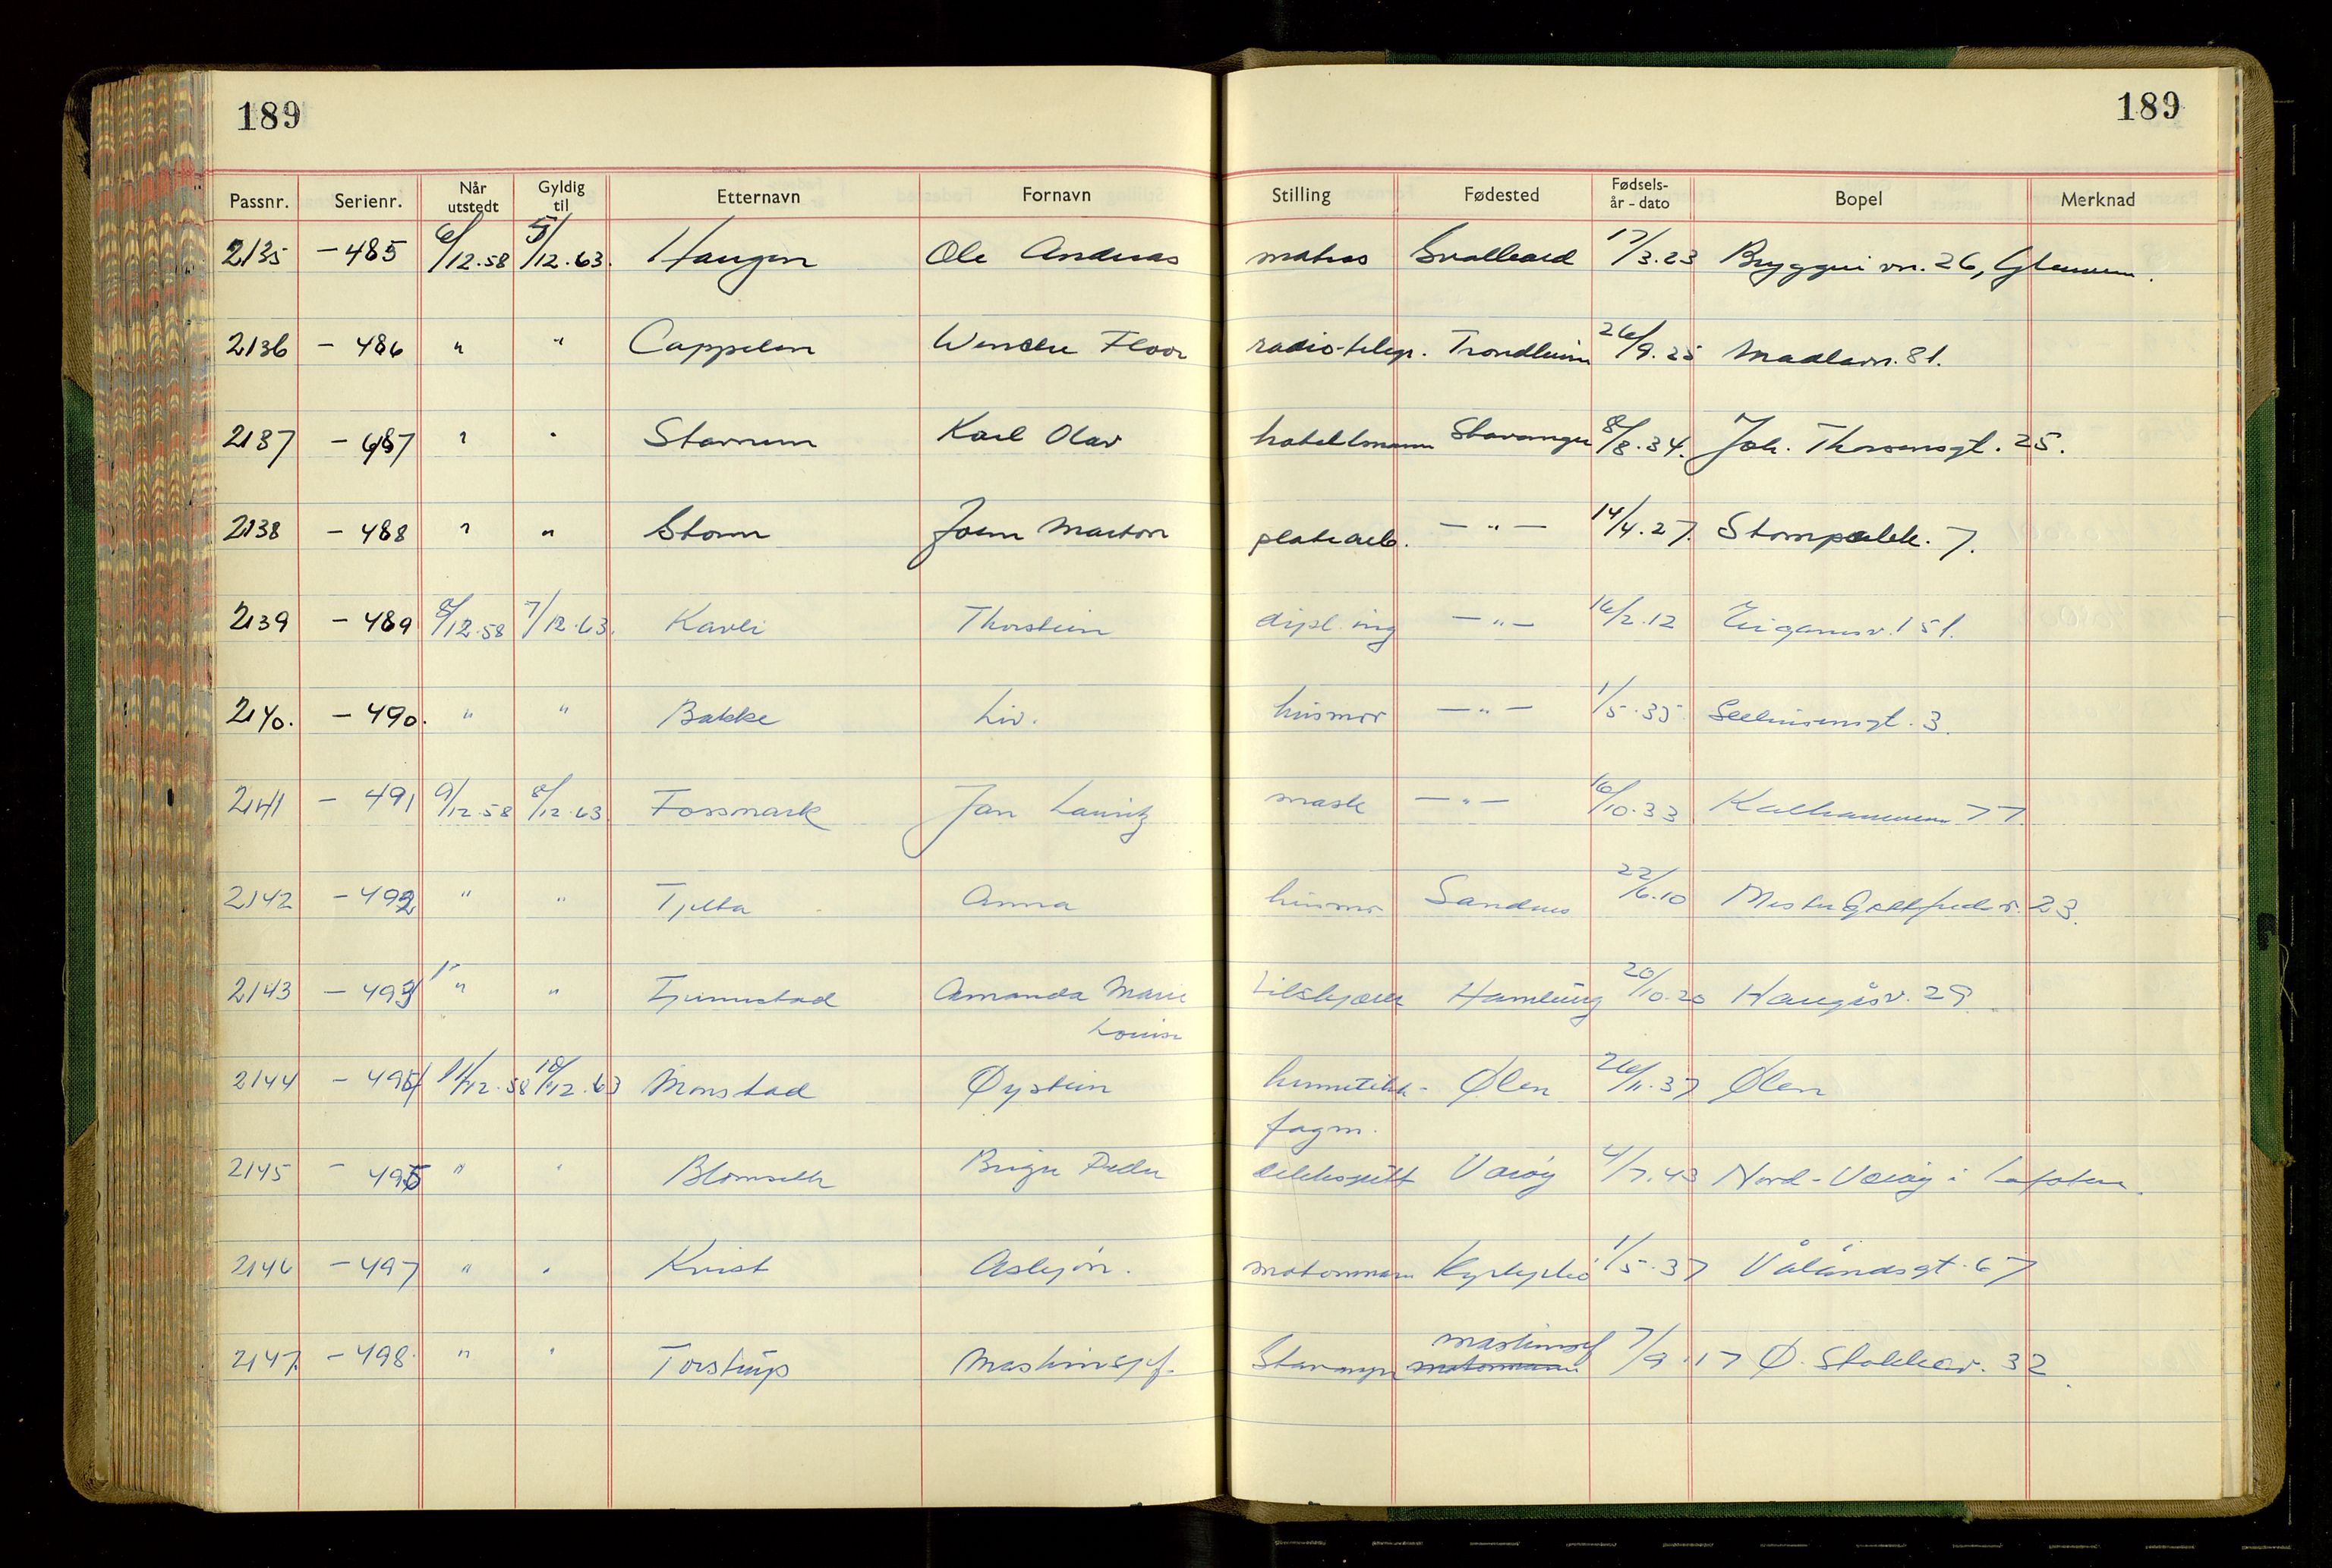 189
189
Passnr. Serienr. Når utstedt Gyldig til Etternavn Fornavn Stilling Fødested Fødsels-år - dato Bopel Merknad
2135 - 485 6/12.58 5/12.63. Haugen Ole Andreas matros Svolvær 17/3.23 26,
2136 - 486 " " Cappelen Wenche Floor radio-telegr. Trondheim 26/9.25 Madlavn. 81.
2137 - 487 " " Stavnem Karl Olav Stavanger 8/8.34. Joh. Thorsensgt. 25.
2138 - 488 " " Storm John Marton platearb. - " - 14/4.27. 7.
2139 - 489 8/12.58 7/12.63. Kavli Thorstein dipl. ing - " - 16/2.12 Eiganesv. 151.
2140. - 490. " " Bakke Liv. husmor - " - 1/5.35 Seehusensgt. 3.
2141 - 491 9/12.58 8/12.63 Fossmark Jan Lauritz mask - " - 16/10.33 Kalhammeren 77.
2142 - 492 " " Tjelta Anna husmor Sandnes 22/6.10 Mester Gottfriedsv. 23.
2143 - 493 " " Amanda Marie tilskjærer Hamburg 20/10.20 Haugåsv. 29.
Louise
2144 - 495 11/12.58 10/12.63 Monstad Øystein hermetikk- Ølen 26/11.37 Ølen
fagm.
2145 - 496 " " Birger Peder dekksgutt Værøy 4/7.43 Nord-Værøy i Lofoten.
2146 - 497 " " Kvist Asbjørn. motormann 1/5.37 Vålandsgt. 67
maskinsjef
2147. - 498. " " Torstrup Maskinsjef. Stavanger motormann 7/9.17 Ø. Stokkav. 32.